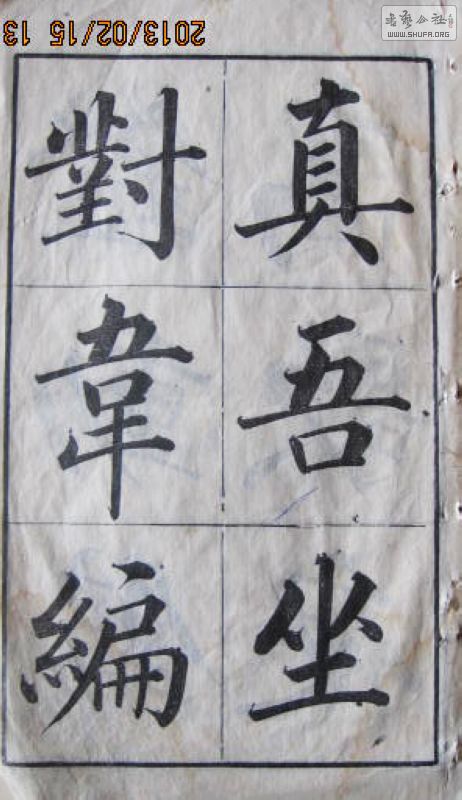 2013/02/15 13
书艺公社
WWW.SHUFA.ORG
真吾坐
對韋編